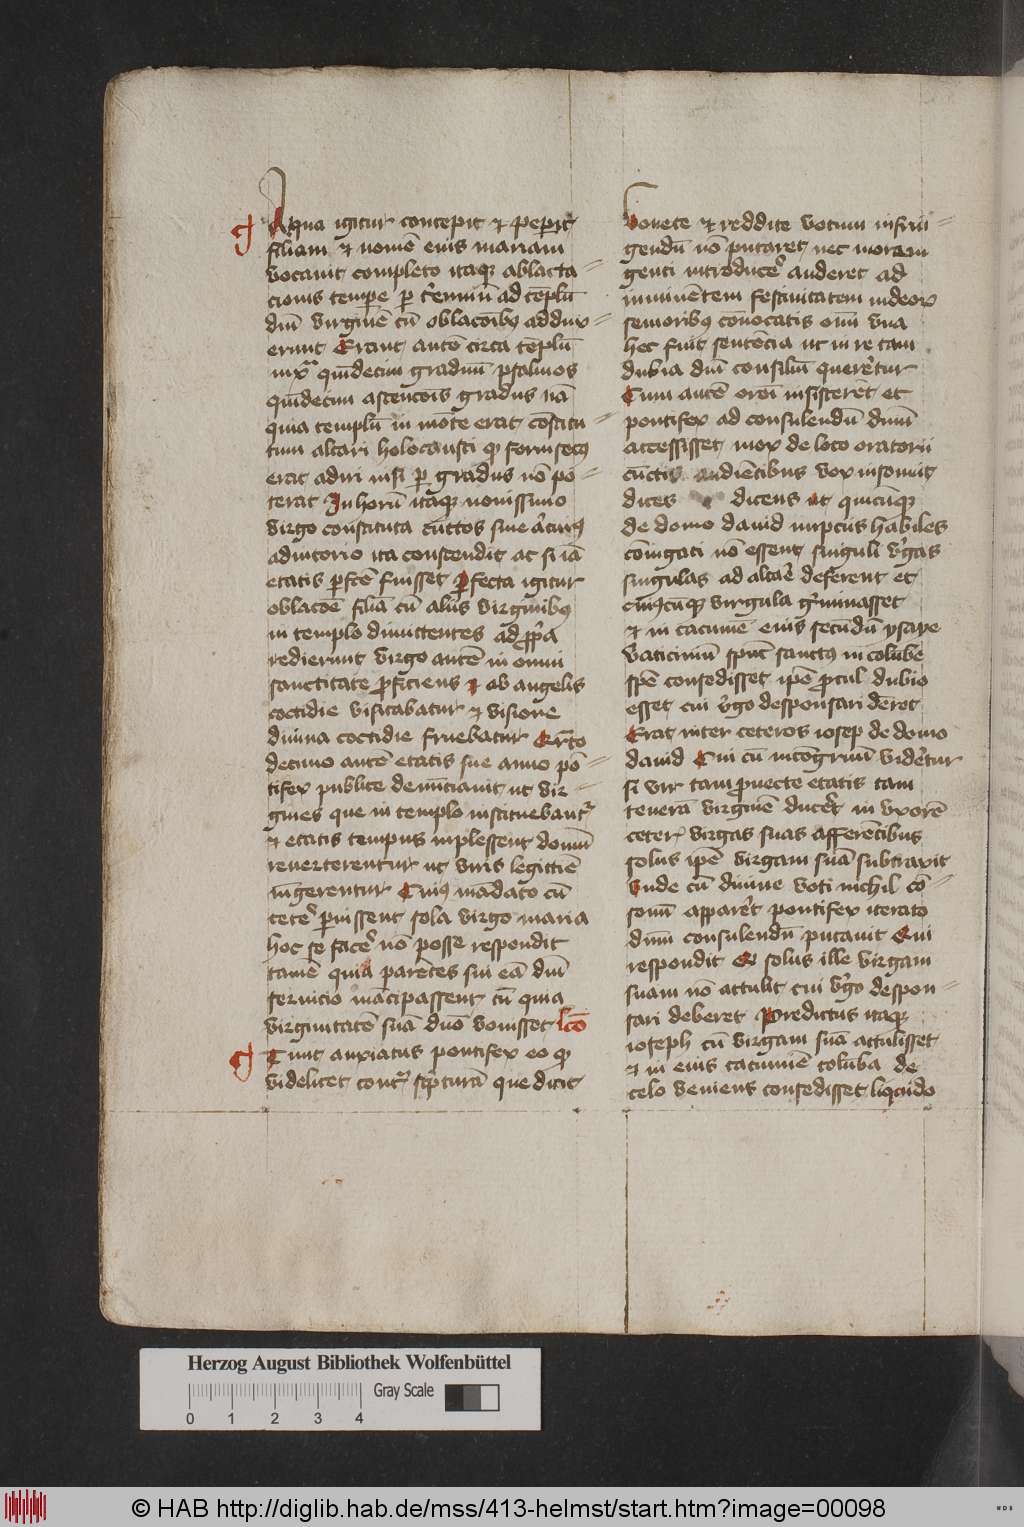 Aqua igitur concepit et peperit
filiam et nomē eius mariam
vocavit completo itaqꝫ ablacta=
cionis tempe ꝑ triennū ad tēplū
dnī virginē cū oblacōibꝰ addux=
erunt Erant autē circa tēplū
iuxᵃ quīdecim graduū psalmos
quīdecim ascencōis gradus nā
quia templū in mōte erat cōstitu=
tum altari holocausti qđ forinsecꝰ
erat adiri nisi ꝑ gradus nō po=
terat In horū itaqꝫ novissimo
virgo constituta cūctos sine alicuiꝰ
adiutorio ita conscendit ac si iā
etatis ꝑfcē fuisset Ꝑfecta igitur
oblacōe filiā cū aliis virginibꝰ
in templo dimittentes ad ꝓpa
redierunt virgo autē in omni
sanctitate ꝓficiens et ab angelis
coctidie visitabatur et visione
divina coctidie fruebatur
decimo autē etatis sue anno pō=
tifex publice denūciavit ut vir=
gines que in templo instituebantᵣ
et etatis tempus implessent domū
reverterentur ut viris legittīe
iūgerentur Cuiꝰ mādato cū
ceteᵉ paruissent sola virgo maria
hoc se facēᵉ nō posse respondit
tamē quia parētes sui eā dnī
servicio mācipassent tū quia
virginitatē suā deo vovisset lcō
Tunc anxiatus pontifex eo qđ
videlicet contᵃ scpturā que dicit
Vovete et reddite votum infrin=
gendū nō putaret nec morem
genti introducēᵉ auderet ad
iminētem festivitatem iudeoꝝ
senioribꝰ cōvocatis oīm una
hec fuit sentēcia ut in re tam
dubia dnī consiliū querētur
Cum autē oroī insisterēt et
pontifex ad consulendū dnm
accessisset mox de loco oratorii
cūctis audiētibus vox insonuit
dices dicens ut quicūqꝫ
de domo david nuptus habiles
cōiugati nō essent singuli vᵉgas
singulas ad altāe deferent et
cuiꝰcūqꝫ virgula gᵉminasset
et in cacumīe eius secūdū ysaye
vaticiniū spūs sanctꝰ in colūbe
spē consedisset ipē ꝓcul dubio
esset cui vᵉgo desponsari dēret
Erat inter ceteros iosep de domo
david Cui cū incōgruū vidētur
si vir tam ꝓvecte etatis tam
tenerā virginē ducēt in uxorē
ceteris virgas suas afferētibus
solus ipē virgam suā subtraxit
Unde cū divine voti nichil cō=
sonū apparēt pontifex iterato
dnm consulendū putavit Qui
respondit Qđ solus ille virgam
suam nō attulit cui vᵉgo despon=
sari deberet Predictus itaqꝫ
ioseph cū virgam suā attulisset
et in eius cacumīe columba de
celo veniens consedisset liquido
Herzog August Bibliothek Wolfenbüttel
Gray Scale
0 1 2 3 4
© HAB http://diglib.hab.de/mss/413-helmst/start.htm?image=00098